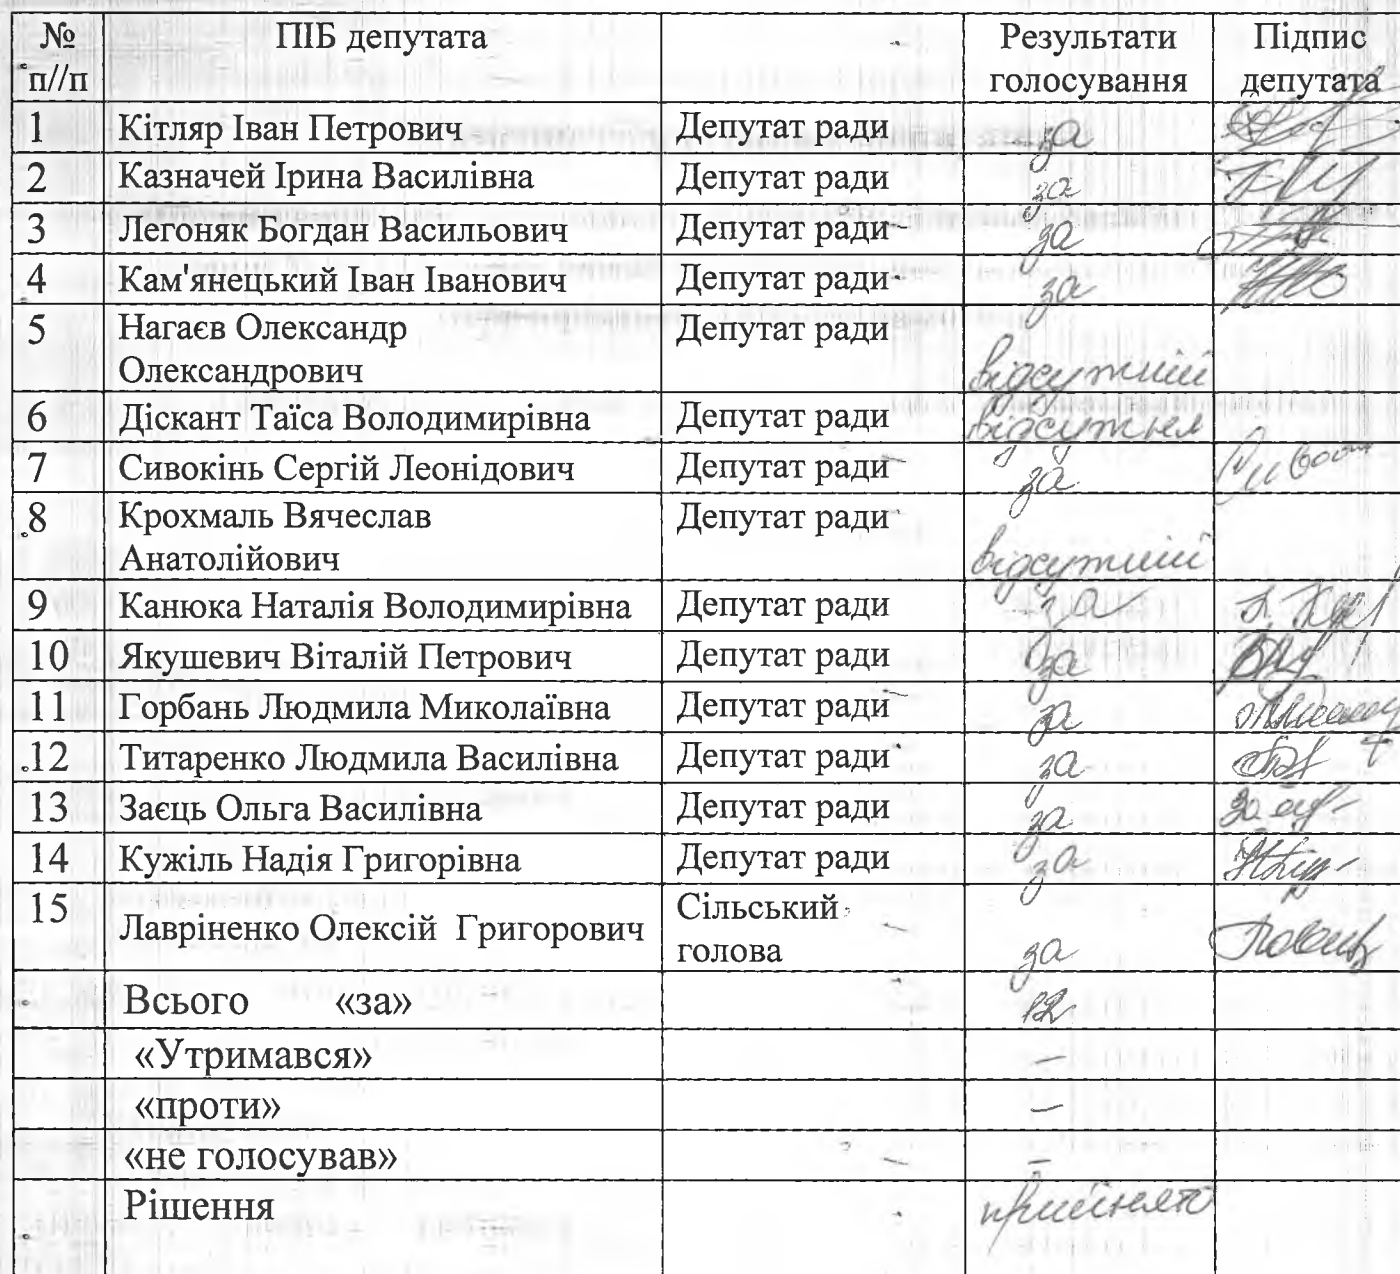 № п//п ПІБ депутата Результати голосування Підпис депутата
1 Кітляр Іван Петрович Депутат ради за
2 Казначей Ірина Василівна Депутат ради за
3 Легоняк Богдан Васильович Депутат ради за
4 Кам'янецький Іван Іванович Депутат ради за
5 Нагаєв Олександр Олександрович Депутат ради відсутній
6 Діскант Таїса Володимирівна Депутат ради відсутня
7 Сивокінь Сергій Леонідович Депутат ради за
8 Крохмаль Вячеслав Анатолійович Депутат ради відсутній
9 Канюка Наталія Володимирівна Депутат ради за
10 Якушевич Віталій Петрович Депутат ради за
11 Горбань Людмила Миколаївна Депутат ради за
12 Титаренко Людмила Василівна Депутат ради за
13 Заєць Ольга Василівна Депутат ради за
14 Кужіль Надія Григорівна Депутат ради за
15 Лавріненко Олексій Григорович Сільський голова за
Всього «за» 12
«Утримався» —
«проти» —
«не голосував» –
Рішення прийнято